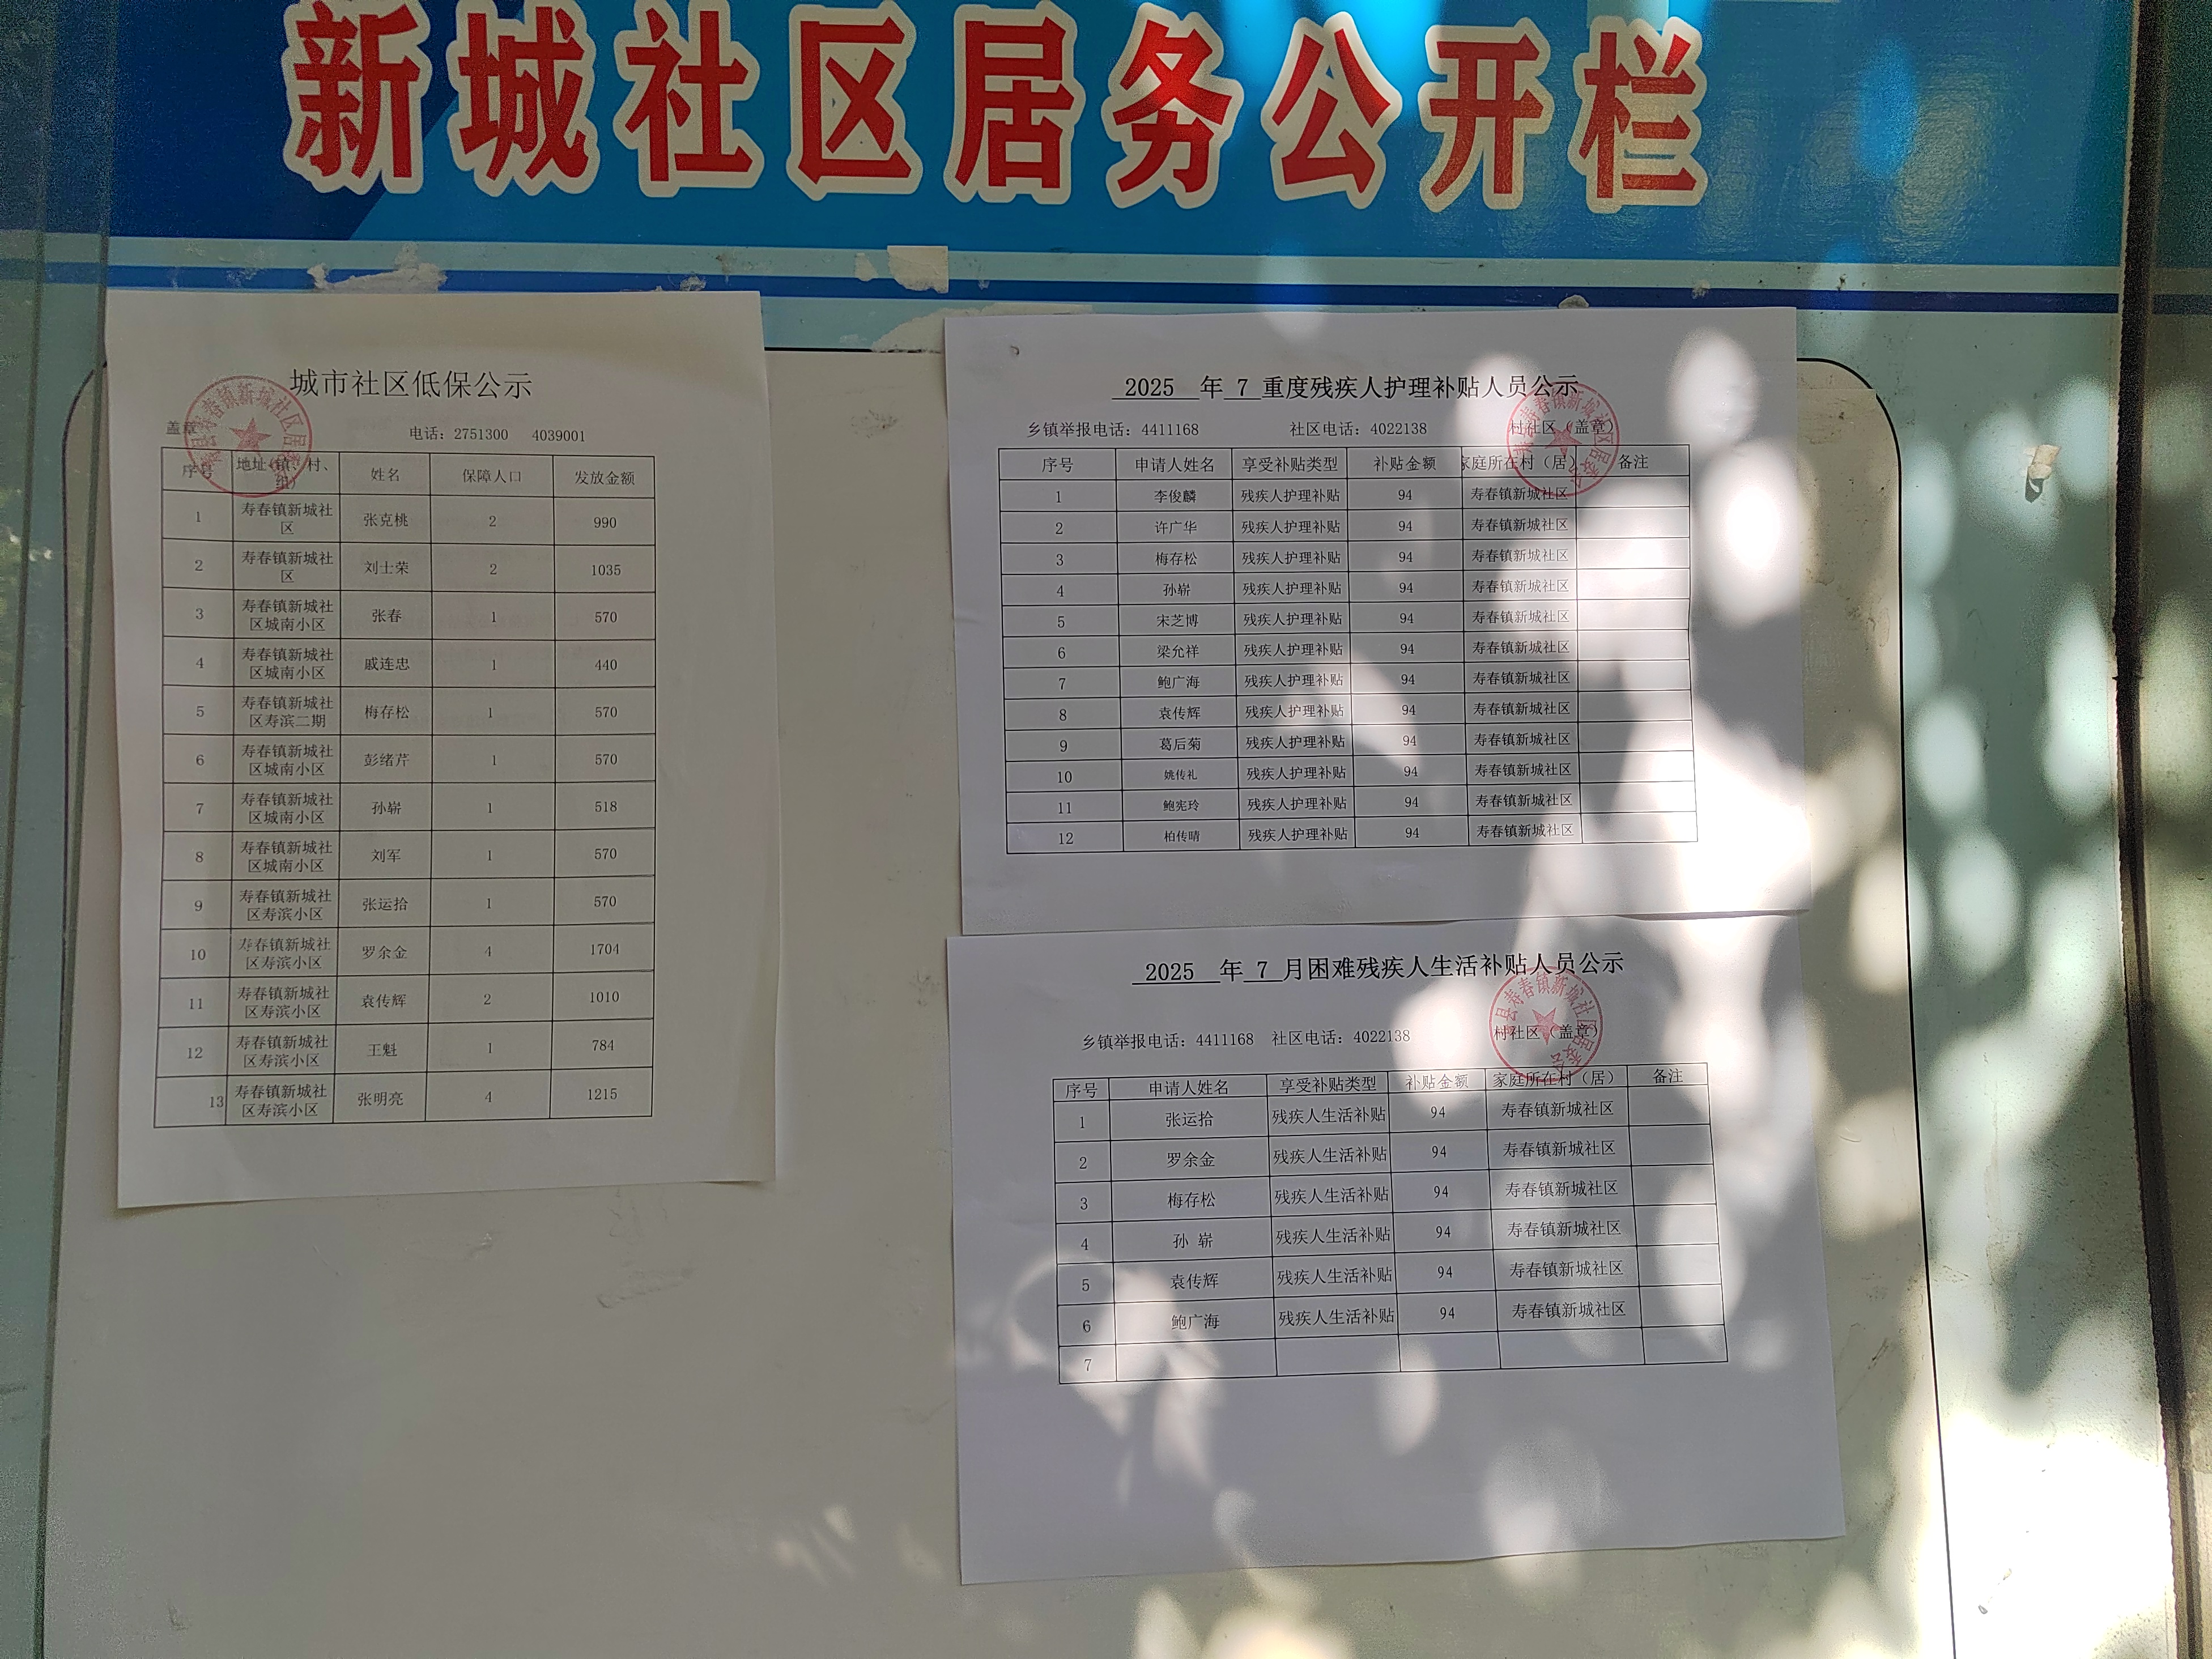 新城社区居务公开栏
城市社区低保公示
盖章
电话：2751300 4039001
序号 地址（镇、村、组） 姓名 保障人口 发放金额
1 寿春镇新城社区 张克桃 2 990
2 寿春镇新城社区 刘士荣 2 1035
3 寿春镇新城社区城南小区 张春 1 570
4 寿春镇新城社区城南小区 戚连忠 1 440
5 寿春镇新城社区寿滨二期 梅存松 1 570
6 寿春镇新城社区城南小区 彭绪芹 1 570
7 寿春镇新城社区城南小区 孙崭 1 518
8 寿春镇新城社区城南小区 刘军 1 570
9 寿春镇新城社区寿滨小区 张运拾 1 570
10 寿春镇新城社区寿滨小区 罗余金 4 1704
11 寿春镇新城社区寿滨小区 袁传辉 2 1010
12 寿春镇新城社区寿滨小区 王魁 1 784
13 寿春镇新城社区寿滨小区 张明亮 4 1215
2025 年 7 重度残疾人护理补贴人员公示
乡镇举报电话：4411168 社区电话：4022138 村社区（盖章）
序号 申请人姓名 享受补贴类型 补贴金额 家庭所在村（居） 备注
1 李俊麟 残疾人护理补贴 94 寿春镇新城社区
2 许广华 残疾人护理补贴 94 寿春镇新城社区
3 梅存松 残疾人护理补贴 94 寿春镇新城社区
4 孙崭 残疾人护理补贴 94 寿春镇新城社区
5 宋芝博 残疾人护理补贴 94 寿春镇新城社区
6 梁允祥 残疾人护理补贴 94 寿春镇新城社区
7 鲍广海 残疾人护理补贴 94 寿春镇新城社区
8 袁传辉 残疾人护理补贴 94 寿春镇新城社区
9 葛后菊 残疾人护理补贴 94 寿春镇新城社区
10 姚传礼 残疾人护理补贴 94 寿春镇新城社区
11 鲍宪玲 残疾人护理补贴 94 寿春镇新城社区
12 柏传晴 残疾人护理补贴 94 寿春镇新城社区
2025 年 7 月困难残疾人生活补贴人员公示
乡镇举报电话：4411168 社区电话：4022138 村社区（盖章）
序号 申请人姓名 享受补贴类型 补贴金额 家庭所在村（居） 备注
1 张运拾 残疾人生活补贴 94 寿春镇新城社区
2 罗余金 残疾人生活补贴 94 寿春镇新城社区
3 梅存松 残疾人生活补贴 94 寿春镇新城社区
4 孙 崭 残疾人生活补贴 94 寿春镇新城社区
5 袁传辉 残疾人生活补贴 94 寿春镇新城社区
6 鲍广海 残疾人生活补贴 94 寿春镇新城社区
7